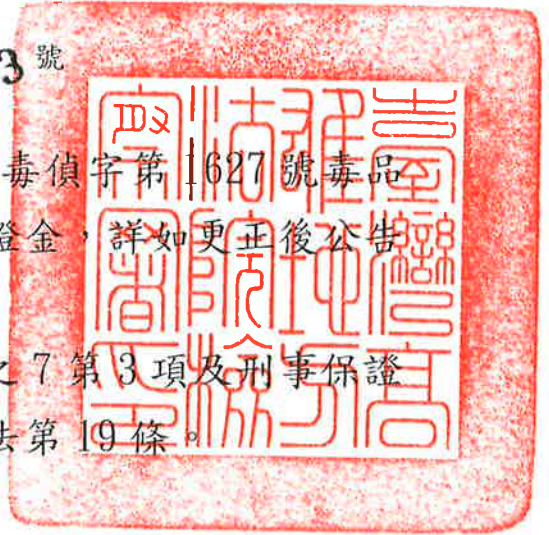 3 號
毒偵字第 1627 號毒品
證金，詳如更正後公告
之 7 第 3 項及刑事保證
法第 19 條。
臺灣高
雄地方
法院檢
察署印